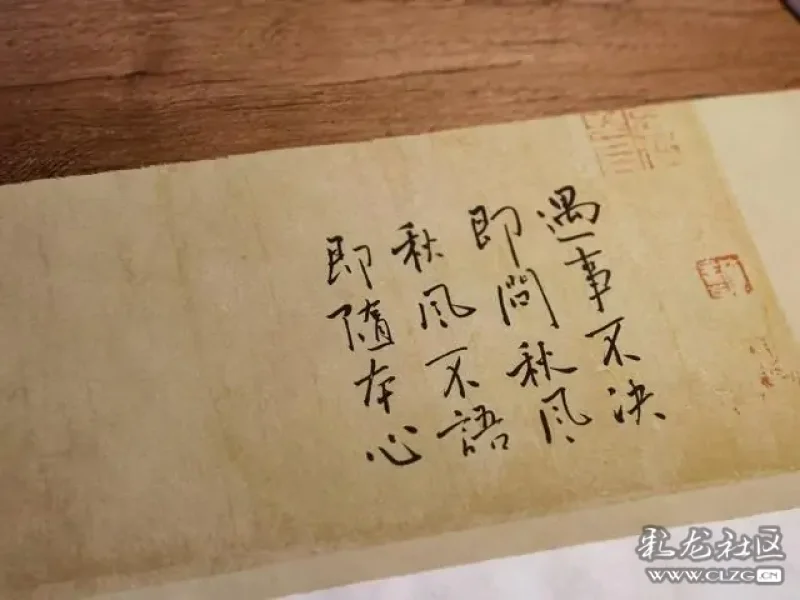 遇事不决
即問秋风
秋风不語
即隨本心
彩龙社区
WWW.CLZG.CN